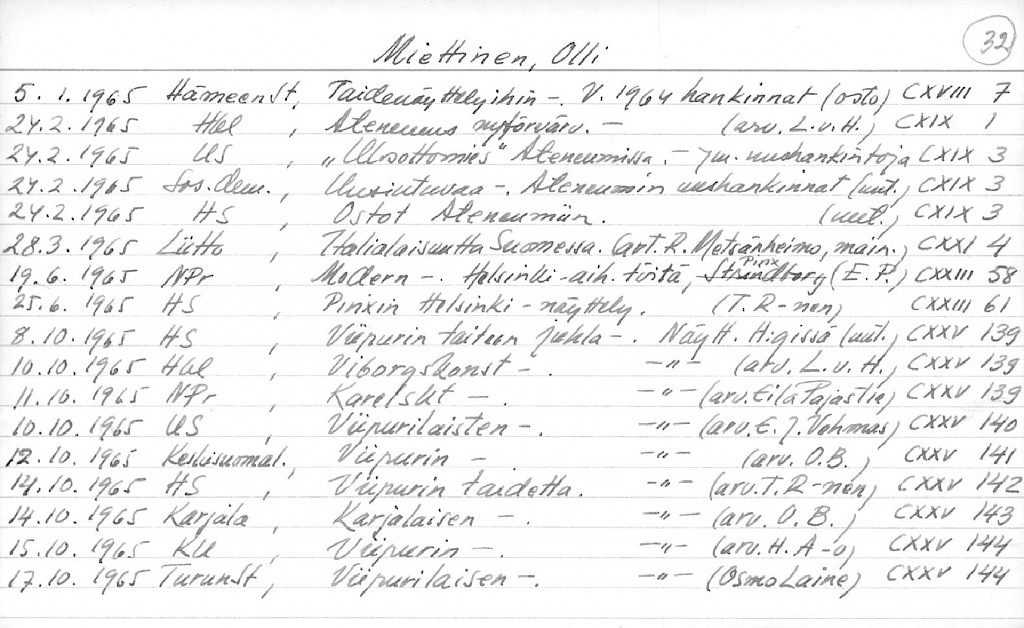 32
Miettinen, Olli
5. 1. 1965 Hämeenst, Taidenäyttelyihin -. V. 1964 hankinnat (osto) CXVIII 7
24.2. 1965 Hbl , Ateneums nyförvärv. - (arv. L.v.H.) CXIX 1
24.2. 1965 US , "Ulosottomies" Ateneumissa. - ym. uushankintoja CXIX 3
24.2. 1965 Sos.dem., Uusiutuvaa -. Ateneumin uushankinnat (uut.) CXIX 3
24.2. 1965 HS , Ostot Ateneumiin. (uut.) CXIX 3
28.3. 1965 Liitto , Italialaisuutta Suomessa. (art. R. Metsänheimo, main.) CXXI 4
19.6. 1965 NPr , Modern -. Helsinki-aih. töitä, Pinx (E.P.) CXXIII 58
25.6. 1965 HS , Pinxin Helsinki-näyttely. (T. R-nen) CXXIII 61
8.10. 1965 HS , Viipurin taiteen juhla -. Näytt. H:gissä (uut.) CXXV 139
10.10. 1965 Hbl , Viborgskonst -. -"- (arv. L.v.H.) CXXV 139
11.10. 1965 NPr , Karelskt -. -"- (arv. Eila Pajastie) CXXV 139
10.10. 1965 US , Viipurilaisten -. -"- (arv. E.J. Vehmas) CXXV 140
12.10. 1965 Keskisuomal., Viipurin - -"- (arv. O.B.) CXXV 141
14.10. 1965 HS , Viipurin taidetta. -"- (arv. T.R-nen) CXXV 142
14.10. 1965 Karjala , Karjalaisen -. -"- (arv. O.B.) CXXV 143
15.10. 1965 KU , Viipurin -. -"- (arv. H. A-o) CXXV 144
17.10. 1965 Turunst , Viipurilaisen -. -"- (Osmo Laine) CXXV 144